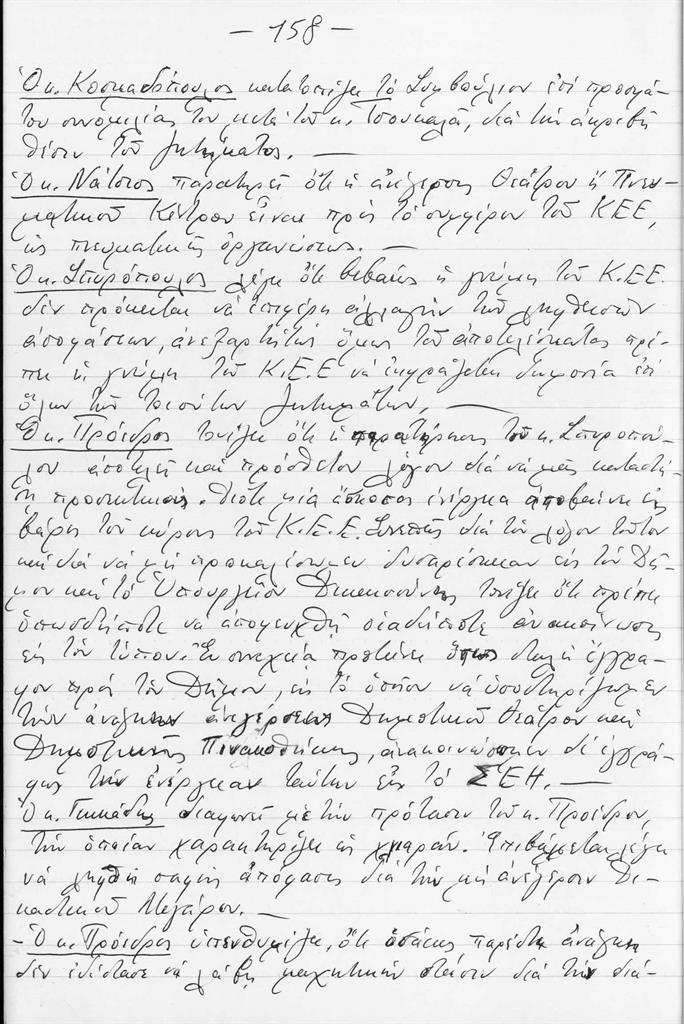 - 158 -
Ὁ κ. Κοσμαδόπουλος κατατοπίζει τό Συμβούλιον ἐπί προσφά-
του συνομιλίας του μετά τοῦ κ. Τσουκαλᾶ, διά τήν ἀκριβῆ
θέσιν τοῦ ζητήματος. —
Ὁ κ. Νάτσιος παρατηρεῖ ὅτι ἡ ἀνέγερσις Θεάτρου ἤ Πνευ-
ματικοῦ Κέντρου εἶναι πρός τό συμφέρον τοῦ ΚΕΕ,
ὡς πνευματικῆς ὀργανώσεως. —
Ὁ κ. Σπυρόπουλος λέγει ὅτι βεβαίως ἡ γνώμη τοῦ Κ.ΕΕ.
δέν πρόκειται νά ἐπιφέρη ἀλλαγήν τῶν ληφθεισῶν
ἀποφάσεων, ἀνεξαρτήτως ὅμως τοῦ ἀποτελέσματος πρέ-
πει ἡ γνώμη τοῦ Κ.Ε.Ε νά ἐκφράζεται δημοσία ἐπί
ὅλων τῶν τοιούτων ζητημάτων. —
Ὁ κ. Πρόεδρος τονίζει ὅτι ἡ παρατήρησις τοῦ κ. Σπυροπού-
λου ἀποτελεῖ καί πρόσθετον λόγον διά νά μᾶς καταστή-
ση προσεκτικούς. Διότι μία ἄσκοπος ἐνέργεια ἀποβαίνει εἰς
βάρος τοῦ κύρους τοῦ Κ.Ε.Ε. Συνεπῶς διά τόν λόγον τοῦτον
καί διά νά μή προκαλέσωμεν δυσαρέσκειαν εἰς τόν Δῆ-
μον καί τό Ὑπουργεῖον Δικαιοσύνης τονίζει ὅτι πρέπει
ὁπωσδήποτε νά ἀποφευχθῆ οἱαδήποτε ἀνακοίνωσις
εἰς τόν τύπον. Ἐν συνεχεία προτείνει ὅπως σταλῆ ἔγγρα-
φον πρός τόν Δῆμον, εἰς τό ὁποῖον νά ὑποστηρίζωμεν
τήν ἀνάγκην ἀνεγέρσεως Δημοτικοῦ Θεάτρου καί
Δημοτικῆς Πινακοθήκης, ἀνακοινώσωμεν δέ ἐγγρά-
φως τήν ἐνέργειαν ταύτην εἰς τό ΣΕΗ. —
Ὁ κ. διαφωνεῖ μέ τήν πρότασιν τοῦ κ. Προέδρου,
τήν ὁποίαν χαρακτηρίζει ὡς χλιαράν. Ἐπιβάλλεται λέγει
νά ληφθῆ σαφής ἀπόφασις διά τήν μή ἀνέγερσιν Δι-
καστικοῦ Μεγάρου. —
- Ὁ κ. Πρόεδρος ὑπενθυμίζει, ὅτι ὁσάκις παρέστη ἀνάγκη
δέν ἐδίστασε νά λάβη μαχητικήν στάσιν διά τήν διά-